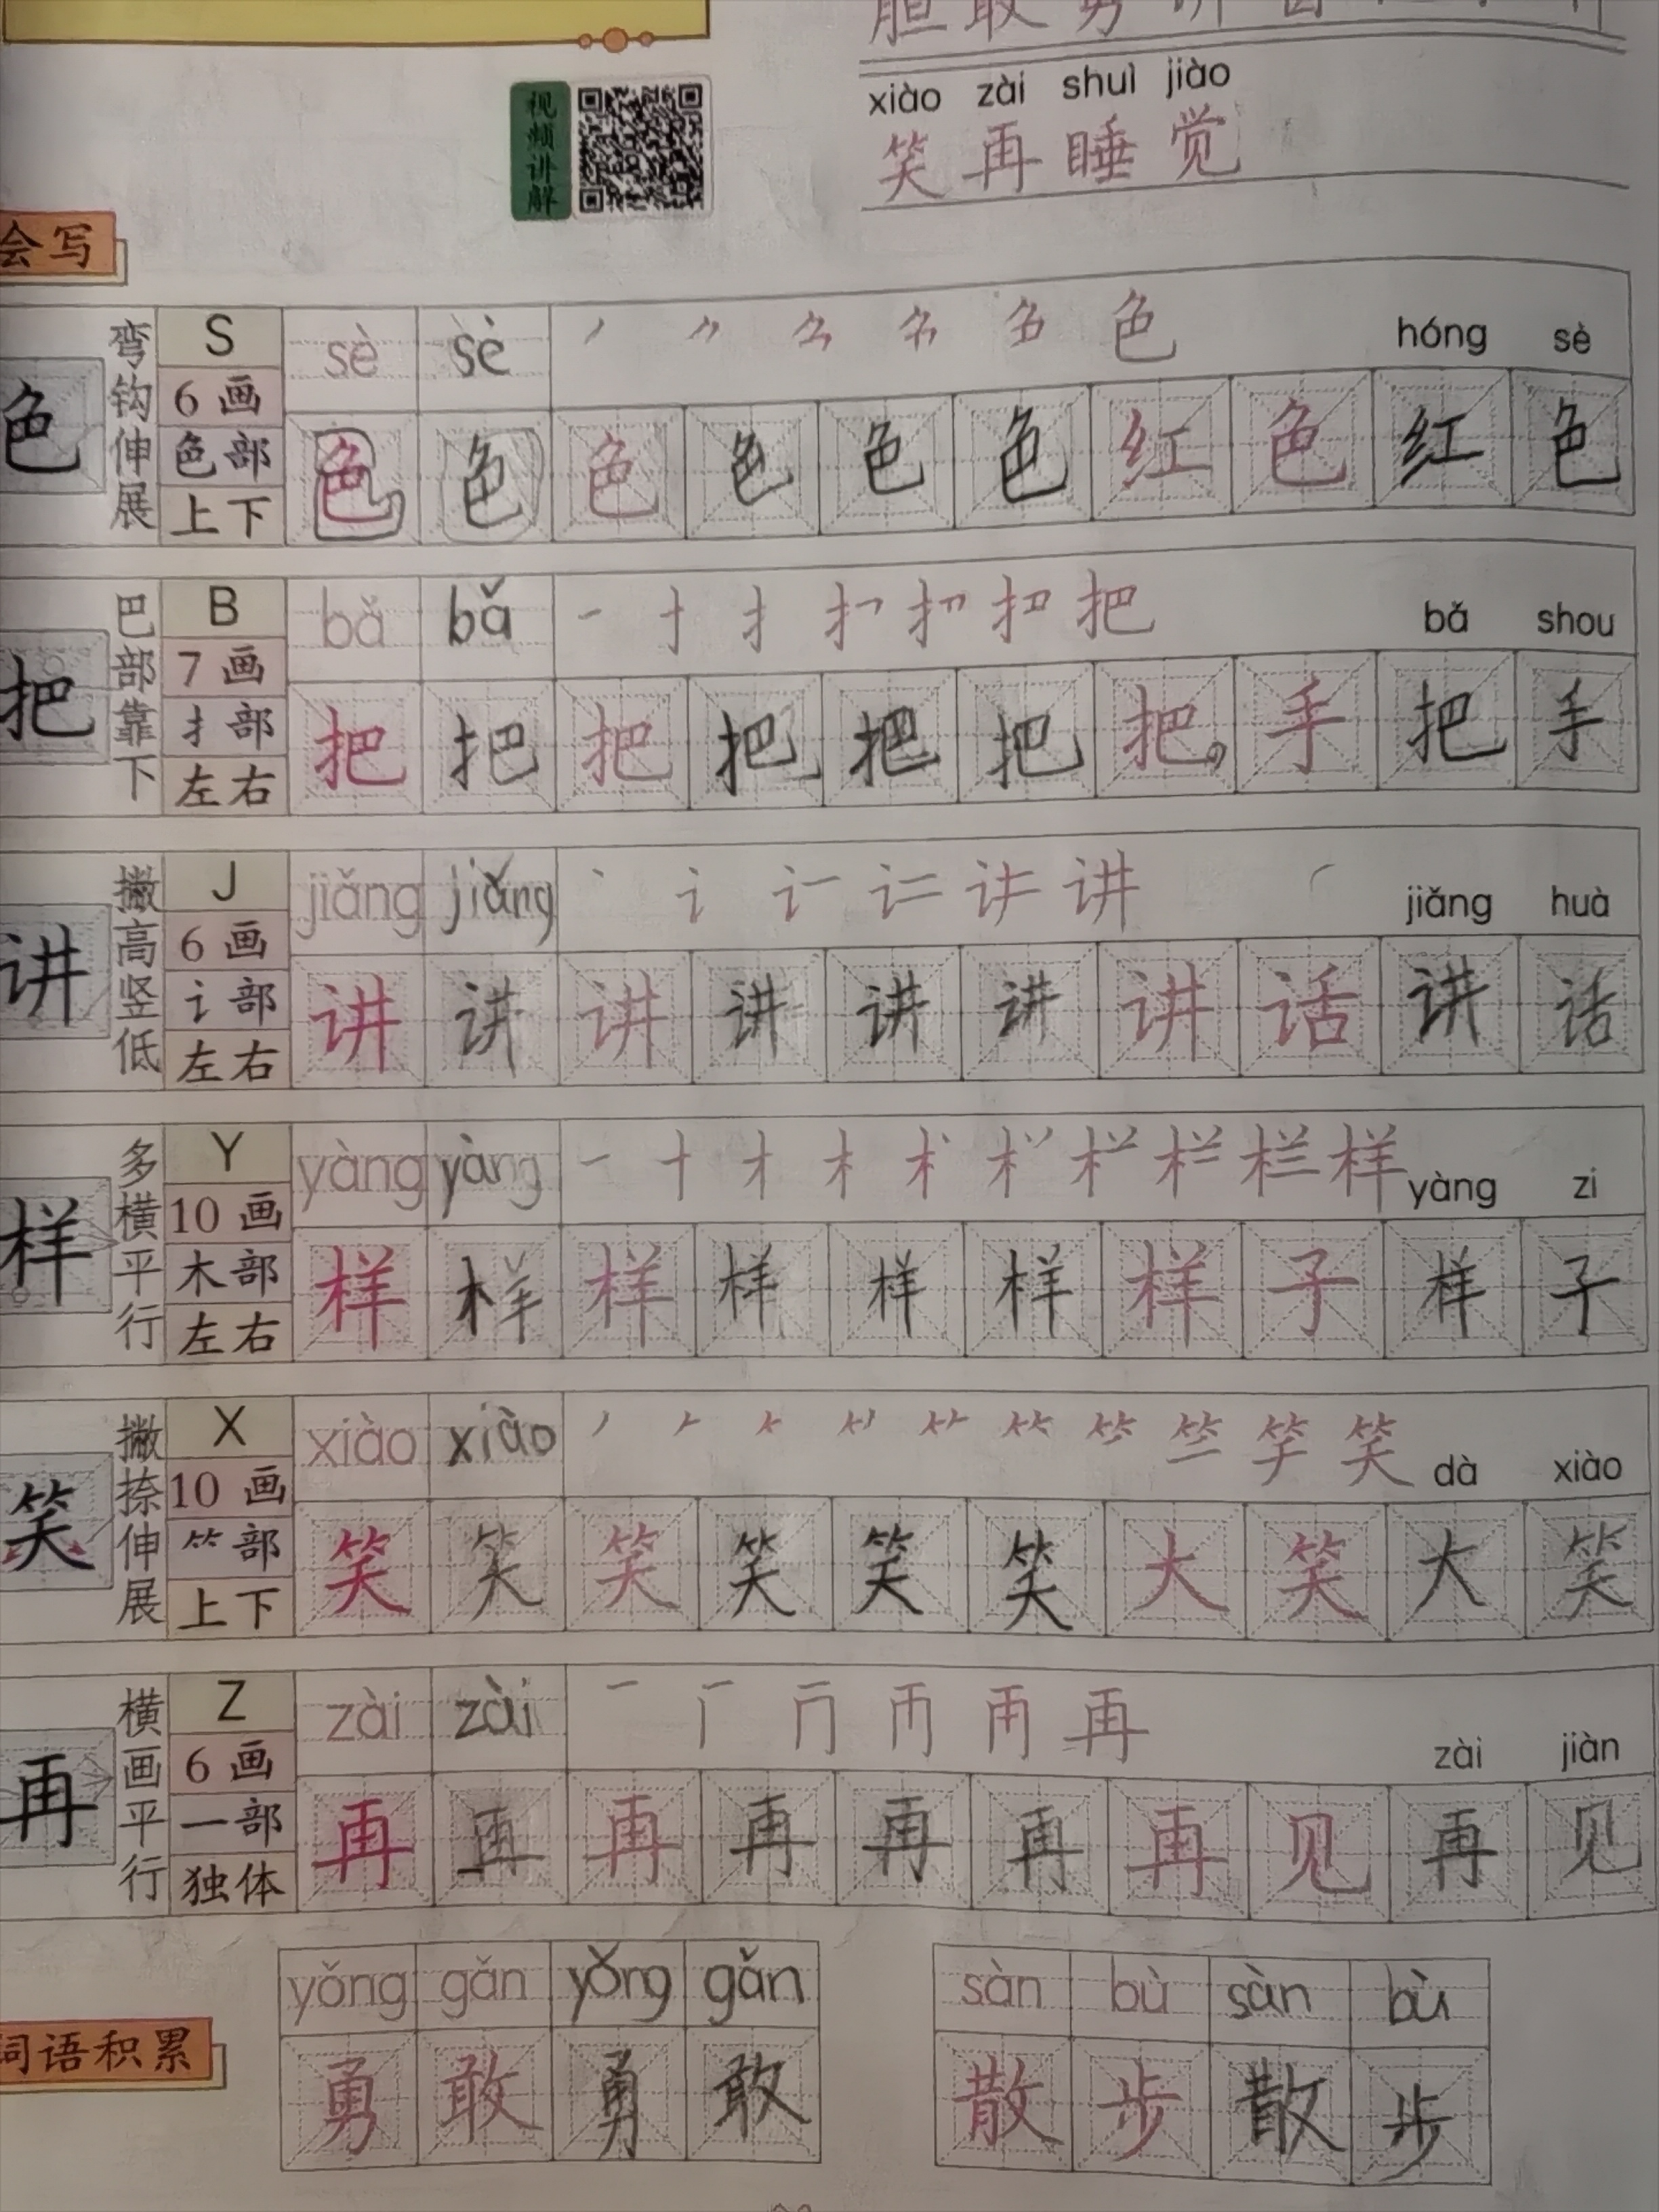 胆 敢 勇 讲
xiào zài shuì jiào
笑 再 睡 觉
视频讲解
会写
弯钩伸展 S sè sè hóng sè
6 画
色 色部 色 色 色 色 色 色 红 色 红 色
上下
巴部靠下 B bǎ bǎ bǎ shou
7 画
把 扌部 把 把 把 把 把 把 把 手 把 手
左右
撇高竖低 J jiǎng jiǎng jiǎng huà
6 画
讲 讠部 讲 讲 讲 讲 讲 讲 讲 话 讲 话
左右
多横平行 Y yàng yàng yàng zi
10 画
样 木部 样 样 样 样 样 样 样 子 样 子
左右
撇捺伸展 X xiào xiào dà xiào
10 画
笑 ⺮部 笑 笑 笑 笑 笑 笑 大 笑 大 笑
上下
横画平行 Z zài zài zài jiàn
6 画
再 一部 再 再 再 再 再 再 再 见 再 见
独体
yǒng gǎn yǒng gǎn sàn bù sàn bù
词语积累
勇 敢 勇 敢 散 步 散 步